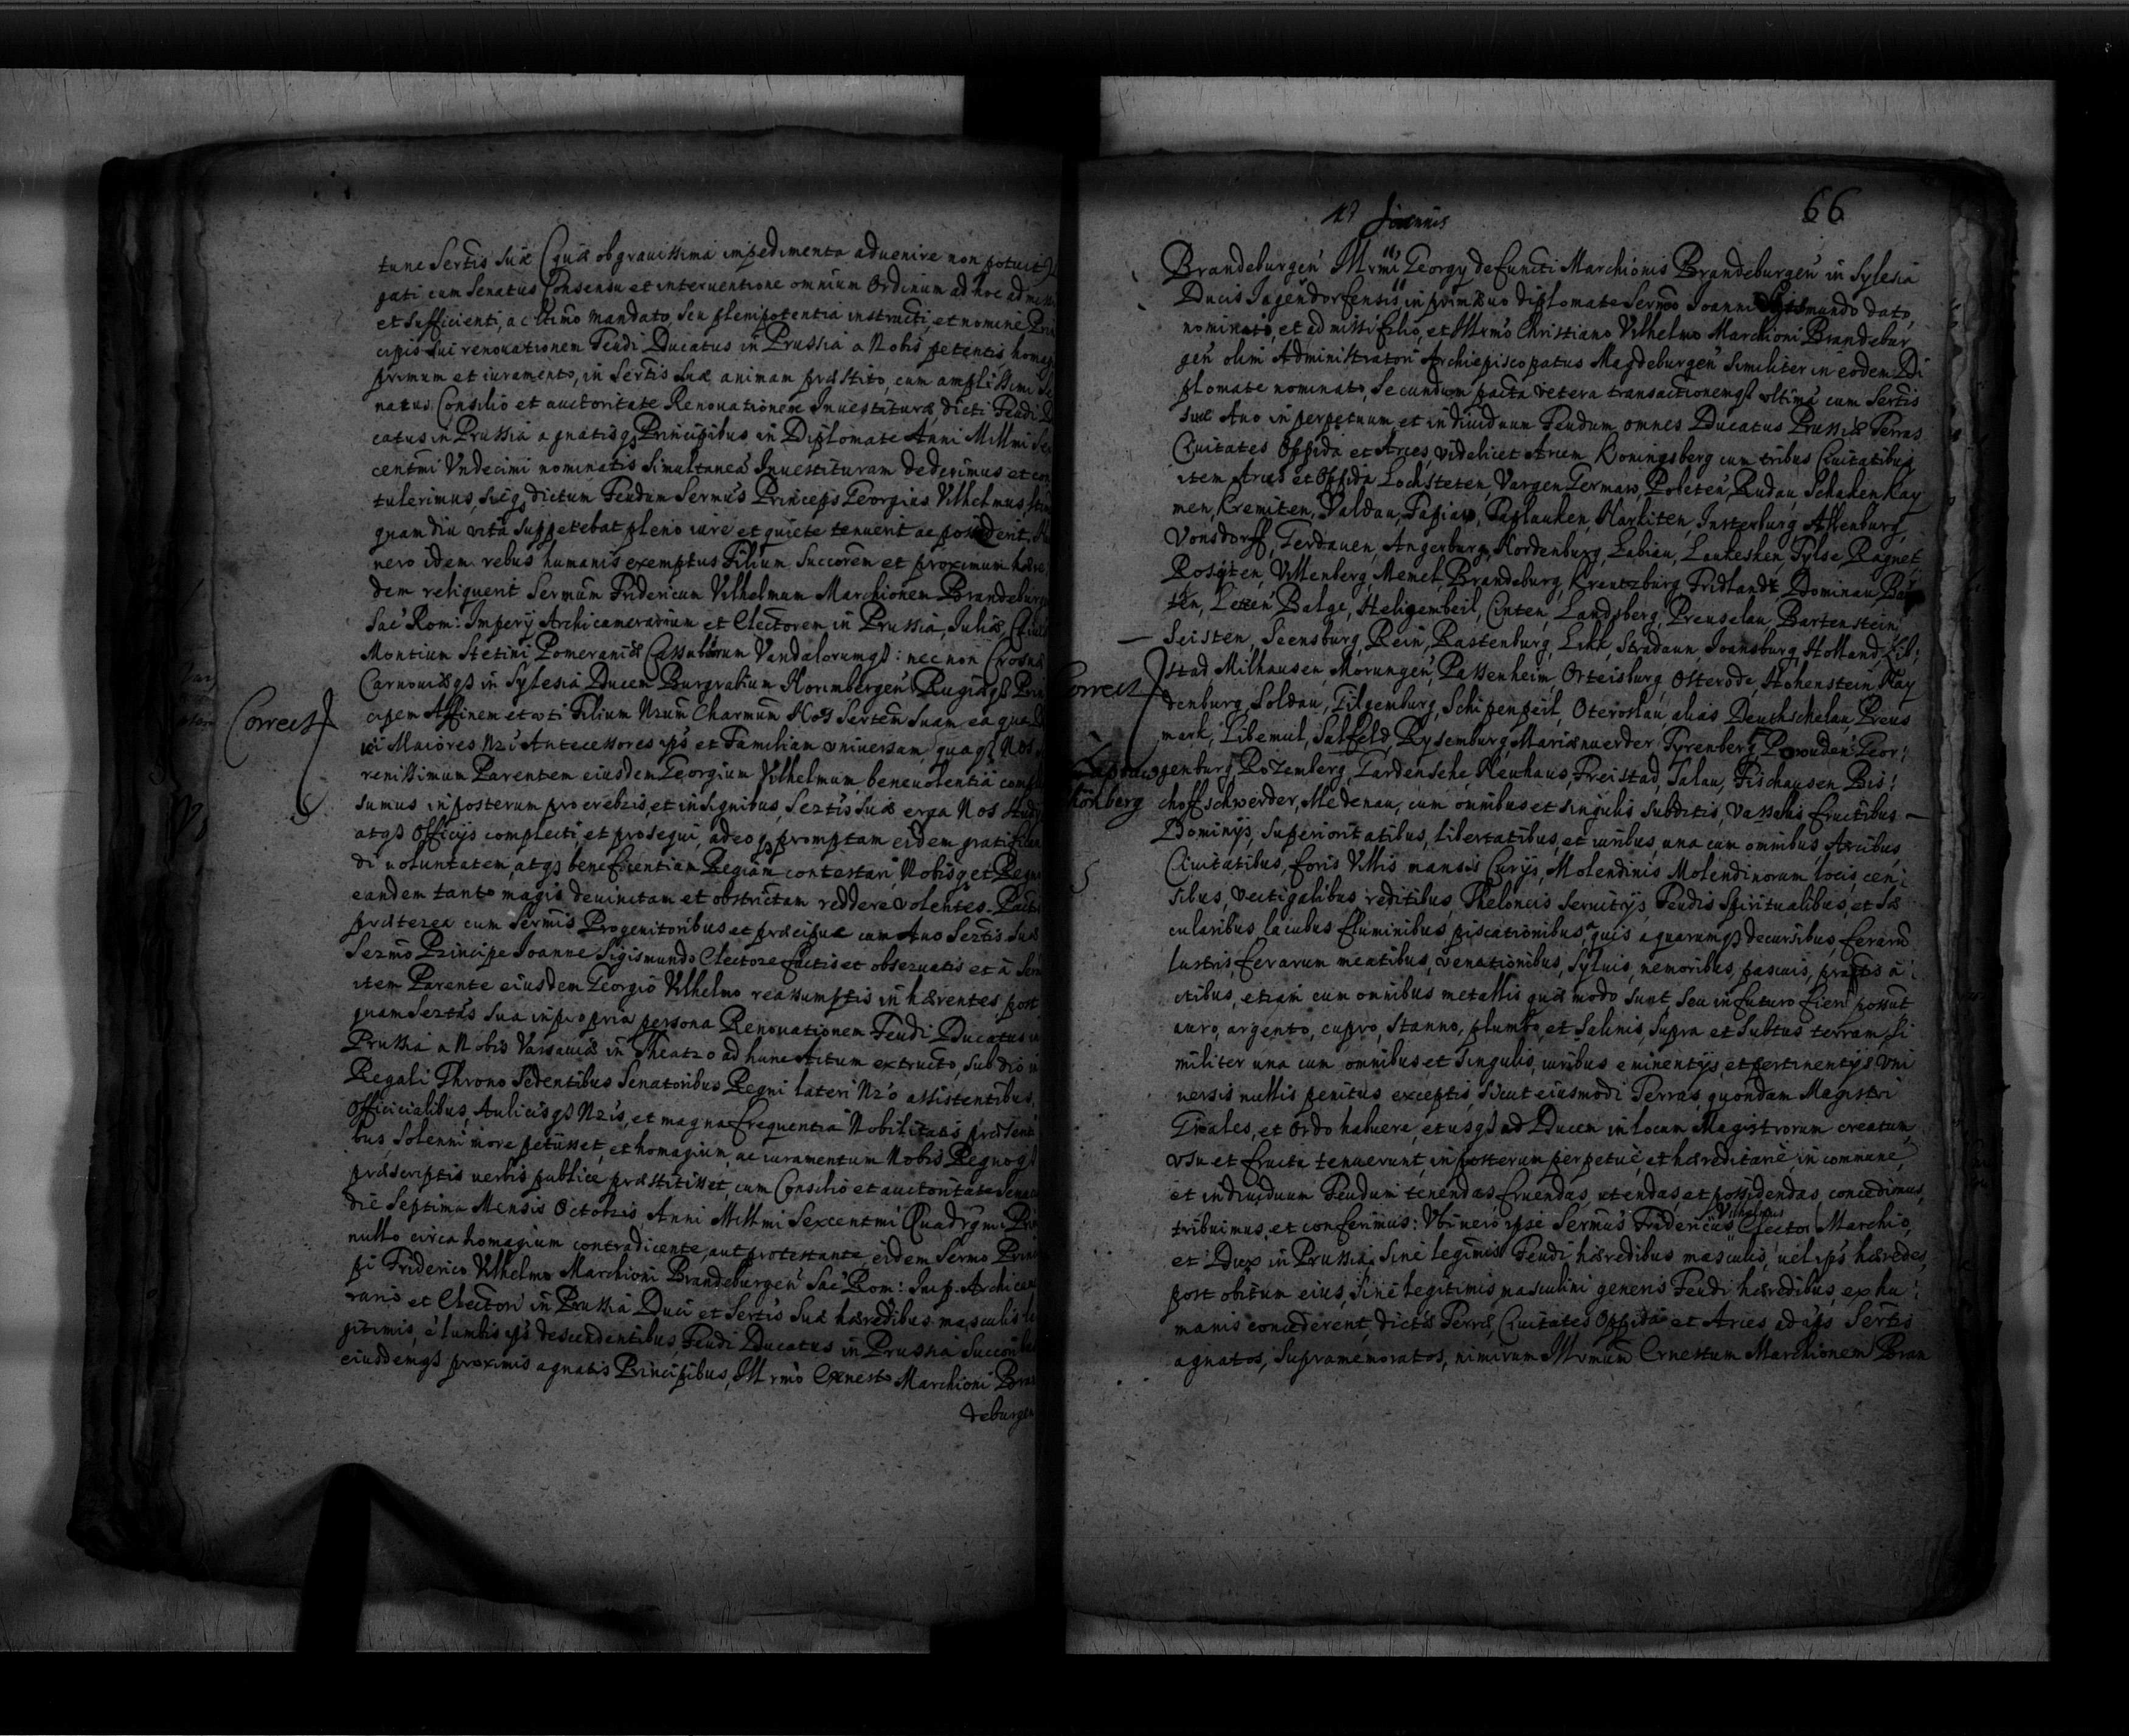 tune Sertis Suæ (quæ ob gravissima impedimenta advenire non potuit)
gati cum Senatus Consensu et interventione omnium Ordinum ad hoc admissi
et sufficienti, ac ltimo mandato, seu plenipotentia instructi, et nomine Prin
cipis sui renovationem Feudi Ducatus in Prussia a Nobis petentis, homag
primum et iuramento, in Sertis Suæ animam præstito, cum amplissimi Se
natus Consilio et auctoritate Renovationem Investituræ dicti Feudi D
catus in Prussia agnatisq Principibus in Diplomate Anni Millmi Sex
centmi Undecimi nominatis simultaneã Investituram dederimus et con
tulerimus, sicq dictum Feudum Sermus Princeps Georgius Vilhelmus
quamdiu vita suppetebat pleno iure et quiete tenuerit ac possiderit,
vero idem rebus humanis exemptus Filium Succorem et proximum hære
dem reliquerit Sermum Fridericum Vilhelmum Marchionem Brandeburg
Sac Rom: Imperÿ Archicamerarium et Electorem in Prussia, Juliæ, Clivi
Montium Stetini Pomeraniæ Cassuborum Vandalorumq: necnon Crosnæ
Carnoviæq in Sylesia Ducem Burgrabium Norimbergen Rugiæq Prin
cipem Affinem et vti Filium Nrum Charmum Nos Sertem Suam ea qua
Maiores Nri Antecessores ips et Familiam vniversam, quaq Nos
renissimum Parentem eiusdem Georgium Vilhelmum, benevolentia comp
sumus in posterum pro crebris, et insignibus, Sertis Suæ erga Nos Studÿ
atq Officÿs complecti et prosequi, adeoq promptam eidem gratifican
di voluntatem, atq beneficientiam Regiam contestari, Nobisq et Regno
eandem tanto magis devinctam et obstrictam reddere volentes. Pactis
præterea cum Sermis Progenitoribus et præcipue cum Avo Sertis Suæ
Sermo Principe Joanne Sigismundo Electore factis et observatis et à Ser
item Parente eiusdem Georgio Vilhelmo reassumptis inhærentes, post
quam Sertas Sua in propria persona Renovationem Feudi Ducatus in
Prussia a Nobis Varsaviæ in Theatro ad hunc Actum extructo, sub dio in
Regali Throno Sedentibus Senatoribus Regni lateri Nro assistentibus,
Officicialibus, Aulicisq Nris, et magna frequentia Nobilitatis præsenti
bus, solenni more petüsset, et homagium, ac iuramentum Nobis Regnoq
præscriptis verbis publice præstitisset, cum Consilio et auctoritate Senatus
die Septima Mensis Octobris Anni Millmi Sexcentmi Quadrgmi Pri
nullo circa homagium contradicente, aut protestante, eidem Sermo Prin
pi Friderico Vilhelmo Marchioni Brandeburgen Sac Rom: Imp. Archicam
rario et Electori in Prussia Duci et Sertis Suæ hæredibus masculis le
gitimis, è lumbis ips descendentibus, Feudi Ducatus in Prussia Succori
eiusdemq proximis agnatis Principibus, Ill rmo Ernesto Marchioni Bran
deburgen
Correct
66
Joannis
Brandeburgen Illrmi Georgÿ defuncti Marchionis Brandeburgen in Sylesia
Ducis Jagendorfensis in primævo diplomate Sermo Joanni Sigismundo dato,
nominato, et admissi filio, et Illrmo Christiano Vilhelmo Marchioni Brandebur
gen olim Administratori Archiepiscopatus Magdeburgen similiter in eodem Di
plomate nominato, Secundum pacta vetera transactionemq vltima cum Sertis
Suæ Avo in perpetuum et individuum Feudum omnes Ducatus Prussiæ Terras
Civitates Oppida et Arces, videlicet Arcem Koningsberg cum tribus Civitatibus
item Arces et Oppida Lochsteten, Vargen Germaw, Pobeten, Rudau, Schaken Kay
men, Kremiten, Valdau, Tapiaw, Taplauken, Narkiten, Insterburg, Allenburg,
Vonsdorff, Gerdauen, Angerburg, Nordenburg, Labiau, Laukesken, Tylse, Ragnet
Rosyten, Villenberg, Memel, Brandeburg, Kreutzburg, Fridlandt, Dominau, Bar
ten, Lecen, Balge, Heligembeil, Cinten, Landsberg, Preuselau, Bartenstein
Seisten, Seensburg, Rein, Rastenburg, Likk, Stradaun, Joansburg, Holland, Lib:
stad Milhausen, Morungen, Passenheim, Orteisburg, Osterode, Hohenstein, Nay
denburg, Soldau, Gilgemburg, Schipenpeil, Oteroslau, alias Deuthschelau, Preus
mark, Libemul, Salfeld, Rysemburg, Mariænverder, Tyrenberg, Powuden, Geor:
genburg, Rozemberg, Gardensche, Neuhaus, Freistad, Salau, Fischausen Bis:
choffschwerder, Medenau, cum omnibus et singulis subditis, Vassalis fructibus
Dominÿs, Superioritatibus, libertatibus, et iuribus, una cum omnibus, Arcibus,
Civitatibus, foris Villis mansis Curÿs, Molendinis Molendinorum locis, cen:
sibus, vectigalibus reditibus, Theloneis servitÿs, Feudis Spiritualibus, et Sæ
cularibus, lacubus fluminibus piscationibus, aquis aquarumq decursibus, ferarum
lustris, ferarum meatibus, venationibus, sylvis, nemoribus, pascuis, pratis à:
ctibus, etiam cum omnibus metallis quæ modo sunt, seu in futuro fieri possut
auro, argento, cupro, stanno, plumbo, et salinis, supra et subtus terram, si
militer una cum omnibus et singulis, iuribus eminentÿs, et pertinentÿs vni
versis nullis penitus exceptis, sicut eiusmodi Terras, quondam Magistri
Gnales, et Ordo habuere, et usq ad Ducem in locum Magistrorum creatum,
vsu et fructu tenuerunt, in posterum perpetuè, et hæreditariè, in commune,
et individuum Feudum tenendas, fruendas, utendas, et possidendas, concedimus,
Vilhelmus
tribuimus, et conferimus: Vbi vero ipse Sermus Fridericus Elector Marchio,
et Dux in Prussia, sine legimis Feudi hæredibus masculis, vel ips hæredes,
post obitum eius, sine legitimis masculini generis Feudi hæredibus, ex hu:
manis concederent, dictæ Terræ, Civitates Oppida et Arces ad ips Sertis
agnatos, supramemoratos, nimirum Illrmum Ernestum Marchionem Bran
Correct